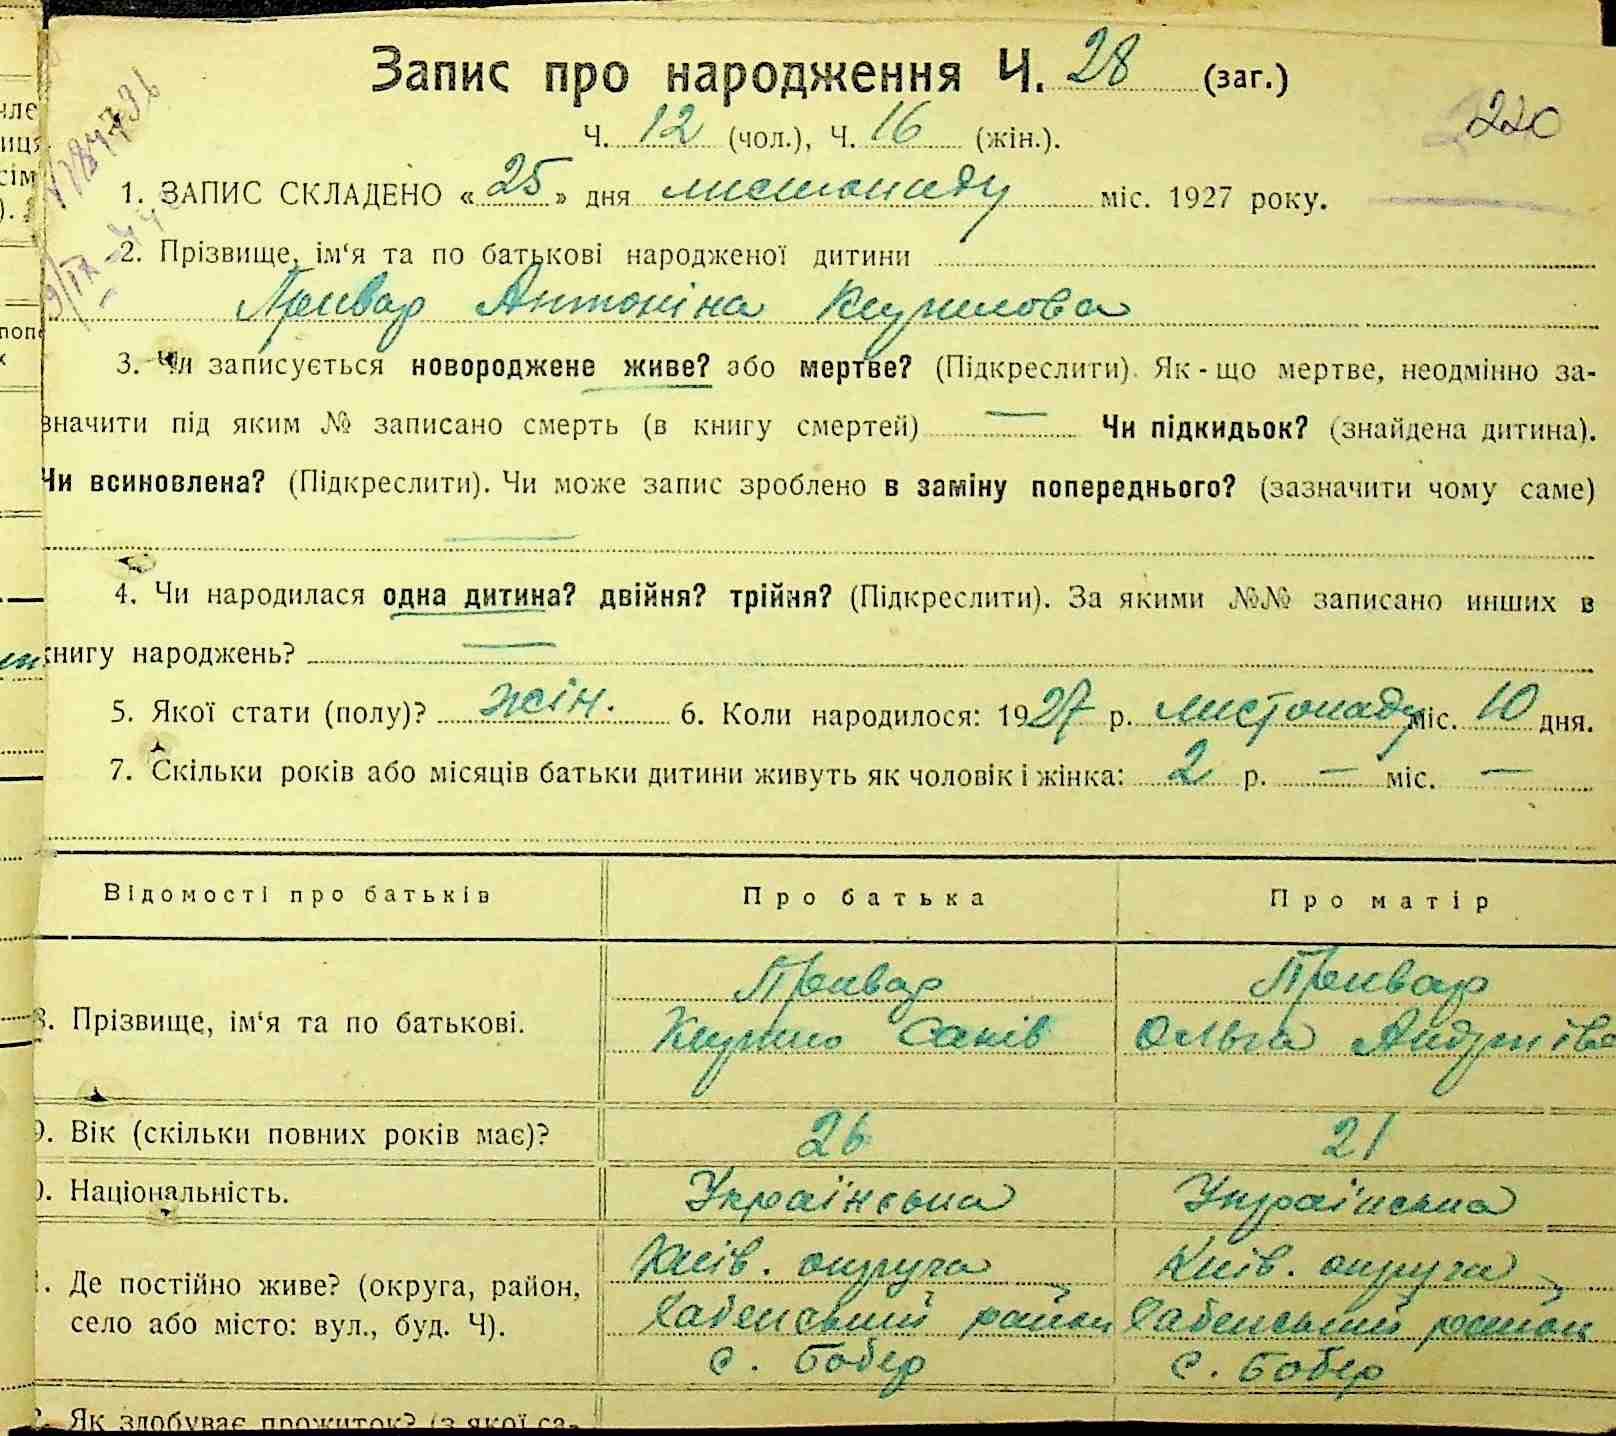 Запис про народження Ч. 28 (заг.)
220
Ч. 12 (чол.), Ч. 16 (жін.).
1. ЗАПИС СКЛАДЕНО «25» дня листопаду міс. 1927 року.
2. Прізвище, ім‘я та по батькові народженої дитини
Привар Антоніна Кирилова
3. Чи записується новороджене живе? або мертве? (Підкреслити). Як-що мертве, неодмінно за-
значити під яким № записано смерть (в книгу смертей) — Чи підкидьок? (знайдена дитина).
Чи всиновлена? (Підкреслити). Чи може запис зроблено в заміну попереднього? (зазначити чому саме)
—
4. Чи народилася одна дитина? двійня? трійня? (Підкреслити). За якими №№ записано инших в
книгу народжень? —
5. Якої стати (полу)? жін. 6. Коли народилося: 1927 р. листопаду міс. 10 дня.
7. Скільки років або місяців батьки дитини живуть як чоловік і жінка: 2 р. — міс. —
Відомості про батьків Про батька Про матір
Привар Привар
8. Прізвище, ім‘я та по батькові. Кирило Ольга
9. Вік (скільки повних років має)? 26 21
0. Національність. Українська Українська
Київ. округа Київ. округа
1. Де постійно живе? (округа, район, Хабенський район Хабенський район
село або місто: вул., буд. Ч). с. Бобер с. Бобер
2. Як здобуває прожиток? (з якої са-